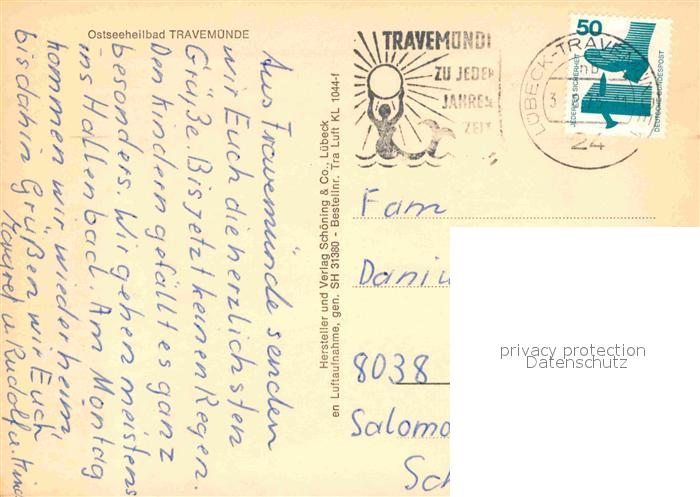 Ostseeheilbad TRAVEMÜNDE
Aus Travemünde senden
wir Euch die herzlichsten
Grüße. Bis jetzt keinen Regen.
Den Kindern gefällt es ganz
besonders. Wir gehen meistens
ins Hallenbad. Am Montag
kommen wir wieder heim,
bis dahin Grüßen wir Euch
Margret u. Rudolf u. Kind
Hersteller und Verlag Schöning & Co., Lübeck
en Luftaufnahme, gen. SH 31380 - Bestellnr. Tra Luft KL 1044-f
TRAVEMÜND
ZU JEDER
JAHRES
ZEIT
LÜBECK-TRAVE
24
50
JEDERZEIT SICHERHEIT
DEUTSCHE BUNDESPOST
Fam
Dani
8038
Salomo
Sch
privacy protection
Datenschutz